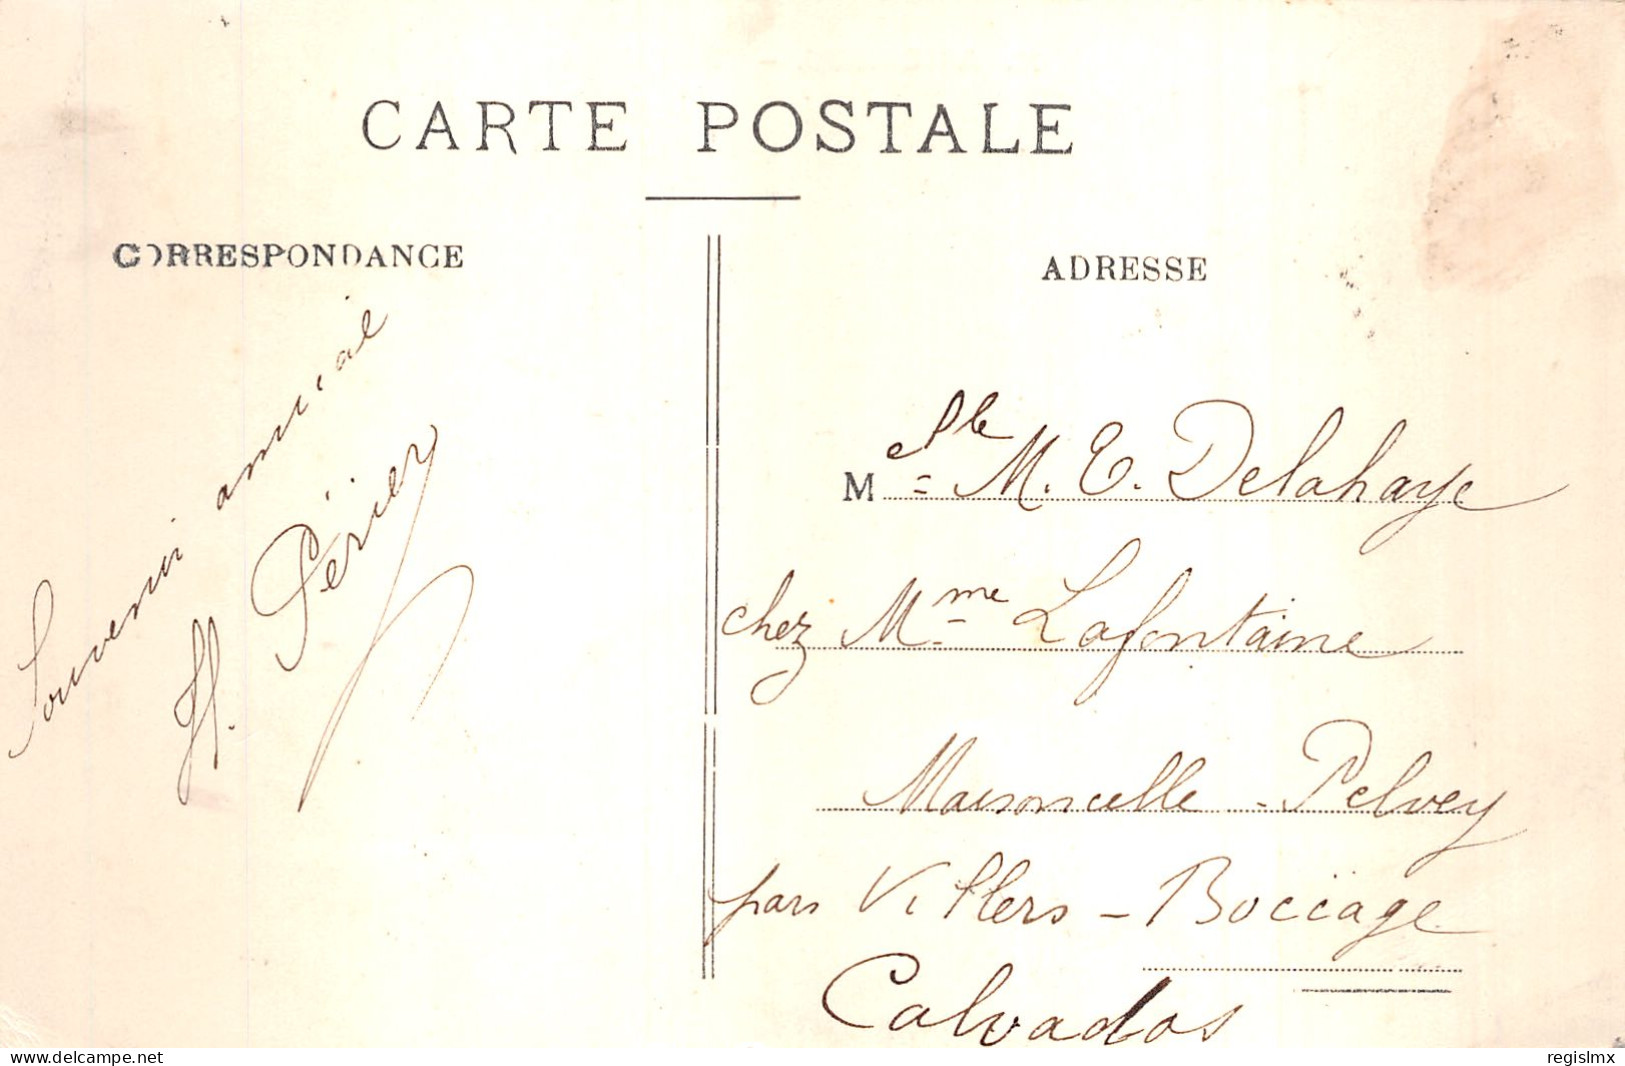 CARTE POSTALE
CORRESPONDANCE
ADRESSE
Souvenir amical
H. Périer
Melle M. E. Delahaye
chez Mme Lafontaine
Maisoncelle - Pelvey
par Villers - Boccage
Calvados
www.delcampe.net
regislmx